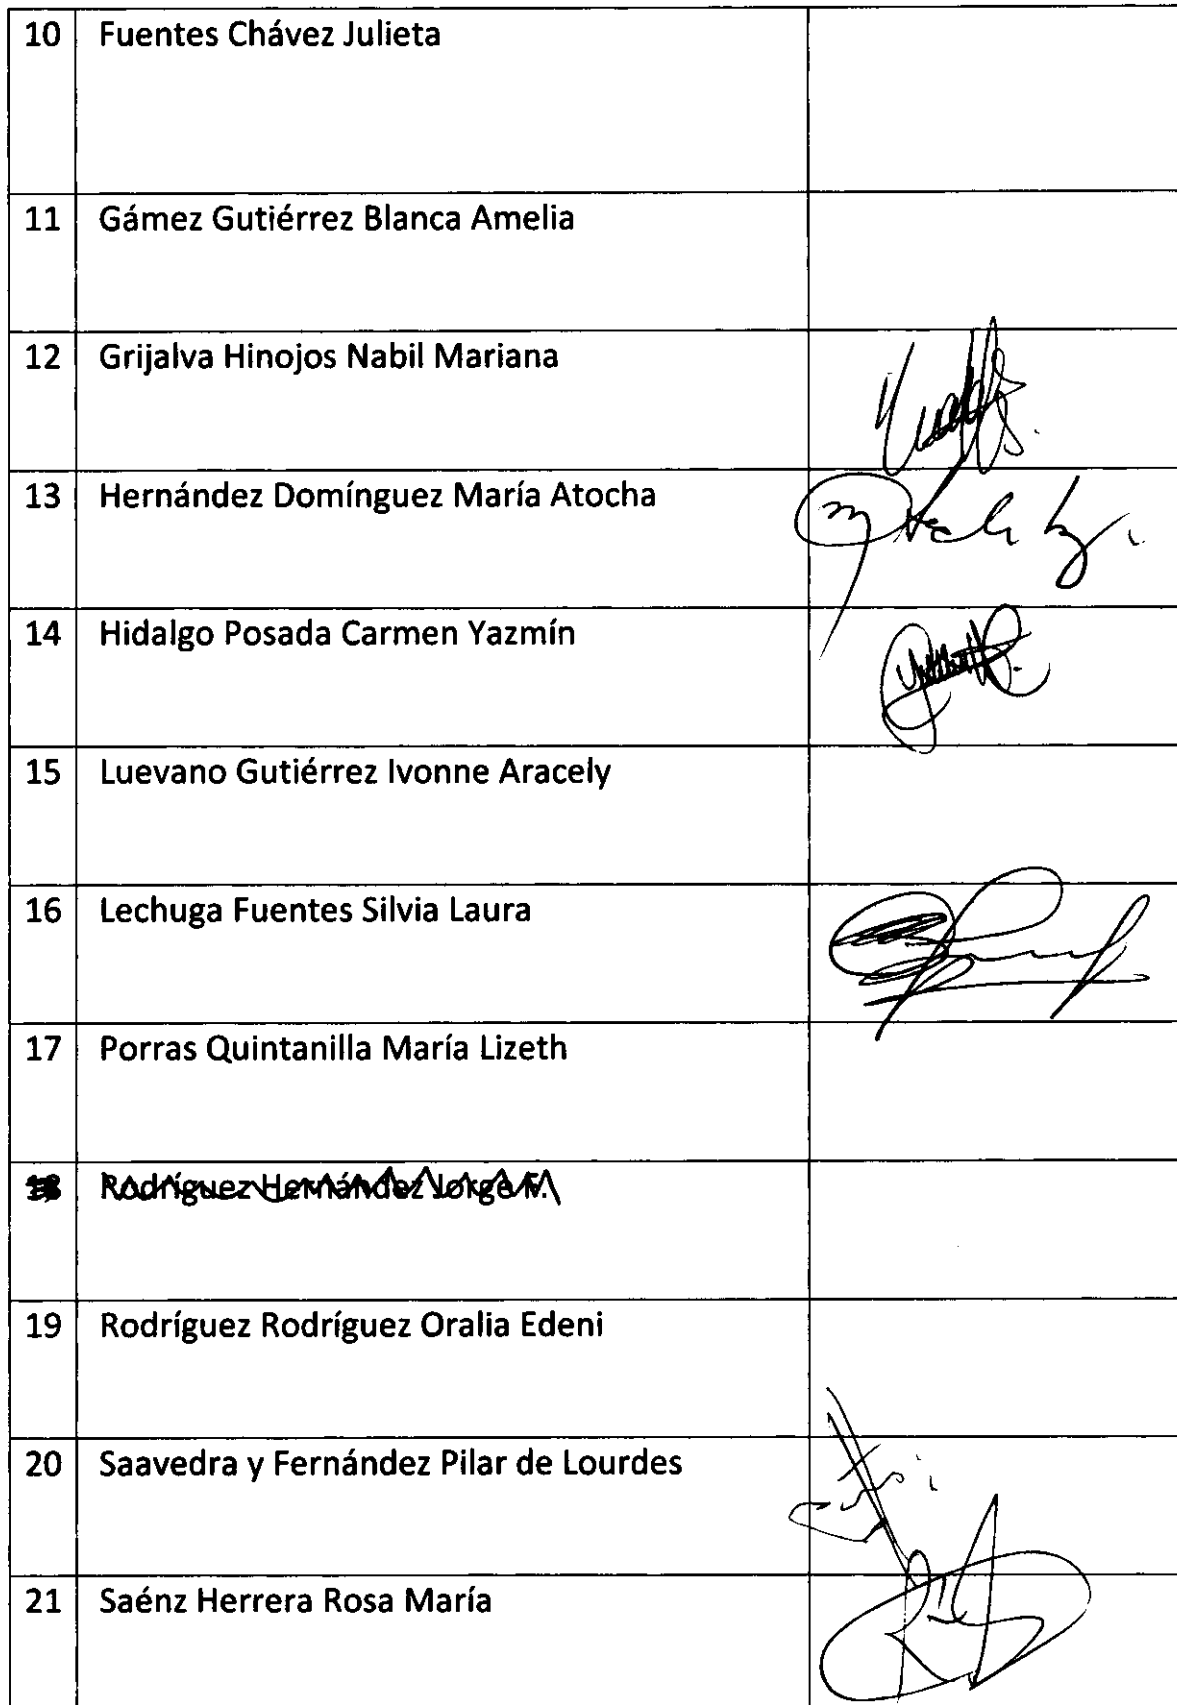 10 Fuentes Chávez Julieta
11 Gámez Gutiérrez Blanca Amelia
12 Grijalva Hinojos Nabil Mariana
13 Hernández Domínguez María Atocha
14 Hidalgo Posada Carmen Yazmín
15 Luevano Gutiérrez Ivonne Aracely
16 Lechuga Fuentes Silvia Laura
17 Porras Quintanilla María Lizeth
18 Rodríguez Hernández Jorge F.
19 Rodríguez Rodríguez Oralia Edeni
20 Saavedra y Fernández Pilar de Lourdes
21 Saénz Herrera Rosa María